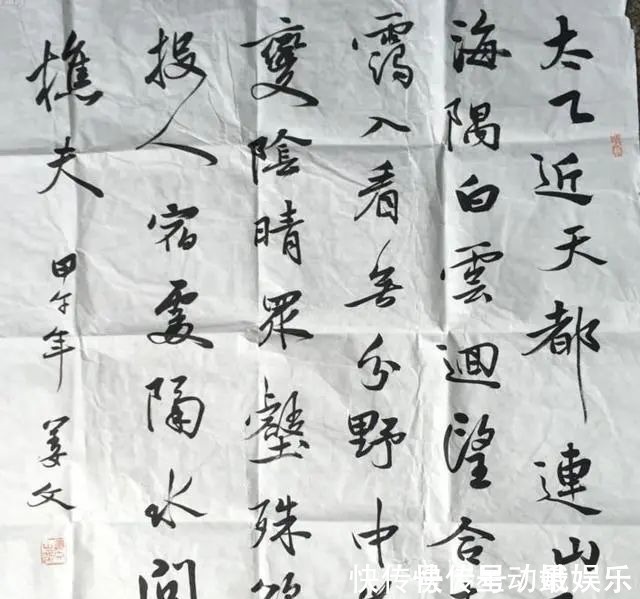 太乙近天都連山
海隅白雲迴望合
靄入看無分野中
變陰晴眾壑殊欲
投人宿處隔水問
樵夫
甲午年 姜文